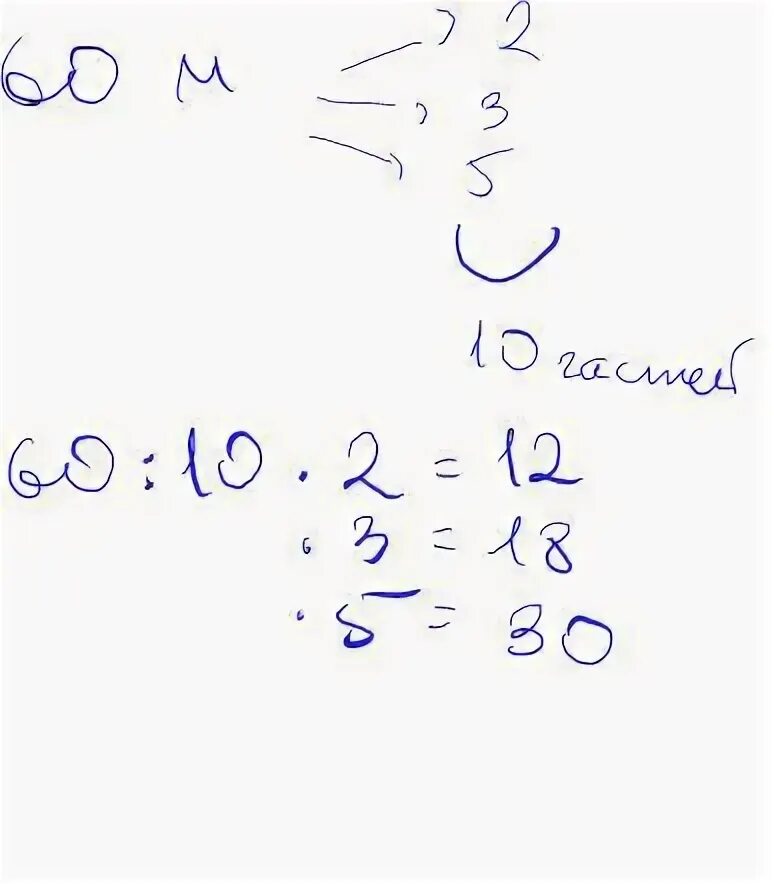 60 м → 2
→ 3
→ 5
10 частей
60:10 · 2 = 12
· 3 = 18
· 5 = 30